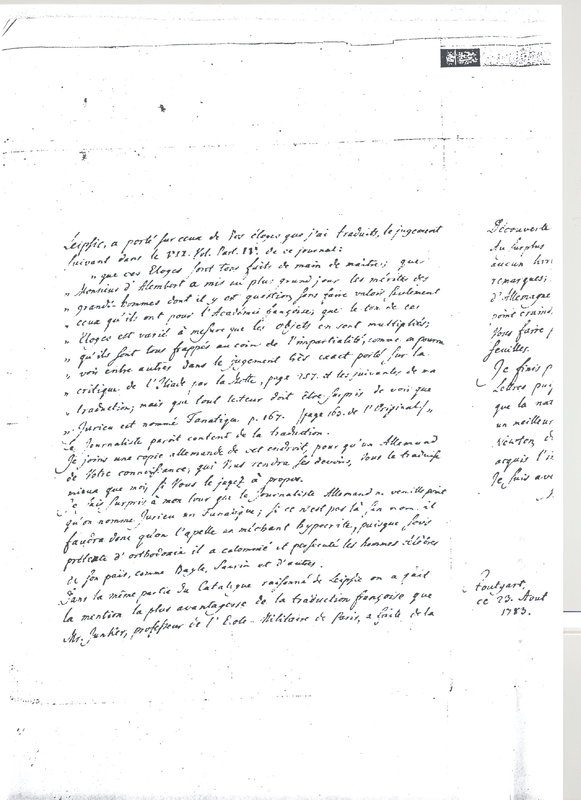 Leipsic, a porté sur ceux de Vos éloges que j'ai traduits, le jugement
suivant dans le Vol. Part. de ce journal:
"que ces Eloges sont tous faits de main de maitre; que
" Monsieur d'Alembert a mis au plus grand jour les mérites des
" grands-hommes dont il y est question, sans faire valoir seulement
" ceux qu'ils ont pour l'Académie françoise; que le ton de ces
" Eloges est varié à mesure que les objets en sont multipliés;
" qu'ils sont tous frappés au coin de l'impartialité, comme on pourra
" voir entre autres dans le jugement très exact porté sur la
" critique de l'Iliade par la Motte, page 157. et les suivantes de ma
" traduction; mais que tout lecteur doit être surpris de voir que
" Jurieu est nommé Fanatique p. 167. (page 163. de l'Original) "
Le Journaliste paroit content de la traduction.
Je joins une copie allemande de cet endroit, pour qu'un Allemand
de Votre connoissance, qui Vous rendra ses devoirs, Vous le traduise
mieux que moi, si Vous le jugez à propos.
Je suis surpris à mon tour que le Journaliste Allemand ne veuille point
qu'on nomme Jurieu un Fanatique; si ce n'est pas là son nom, il
faudra donc qu'on l'apelle un méchant hypocrite, puisque sous
prétexte d'orthodoxie il a calomnié et persecuté les hommes célèbres
de son païs, comme Bayle, Saurin et d'autres.
Dans la même partie du Catalogue raisonné de Leipsic on a fait
la mention la plus avantageuse de la traduction françoise que
Mr. Junker, professeur de l'Ecole Militaire de Paris, a faite de la
Découverte
Au surplus
aucun
remarques;
d'Allemagne
point crains
Vous faire
feuilles.
Je finis
Lettres
que la
un meilleur
Newton
acquis
Je suis
Stoutgart,
ce 23. Aout
1783.